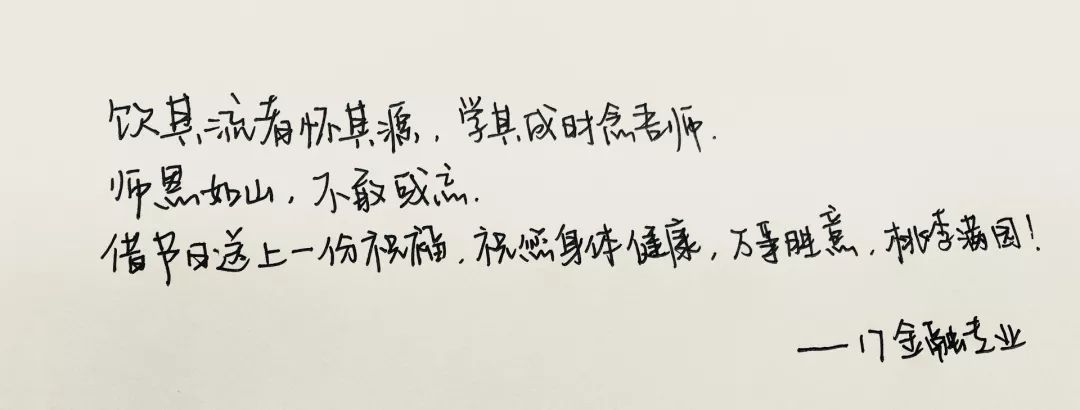 饮其流者怀其源，学其成时念吾师.
师恩如山，不敢或忘.
借节日送上一份祝福，祝您身体健康，万事胜意，桃李满园！
——17金融专业